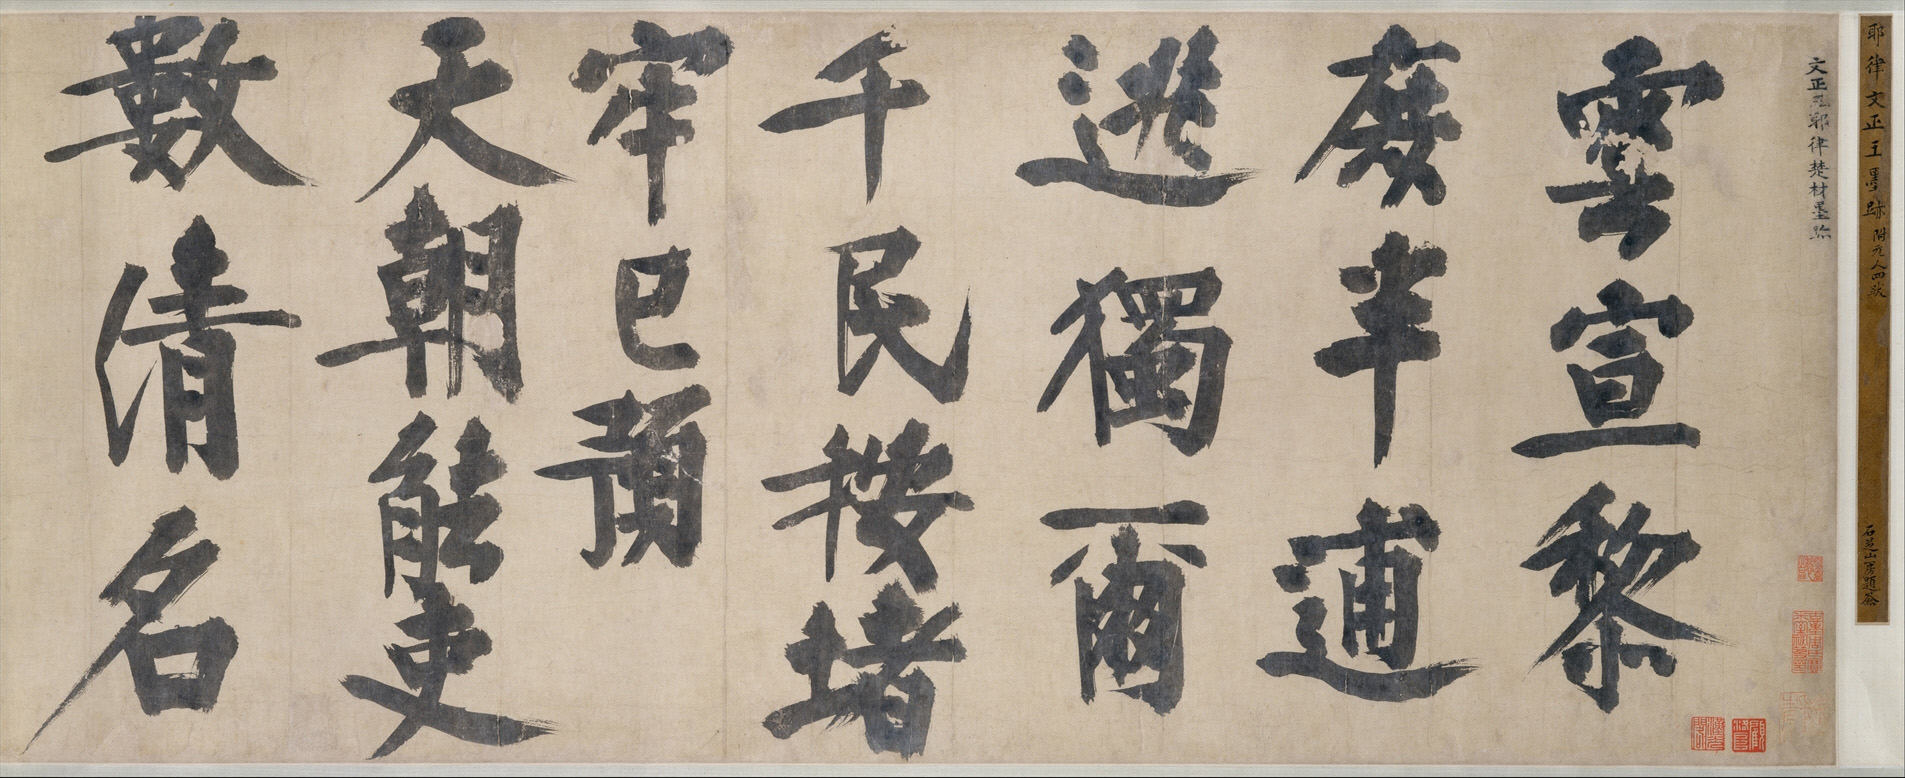 耶律文正王墨跡 附元人四跋
文正王耶律楚材墨跡
雲宣黎
庶半逋
逃獨爾
千民按堵
牢已預
天朝能吏
數清名